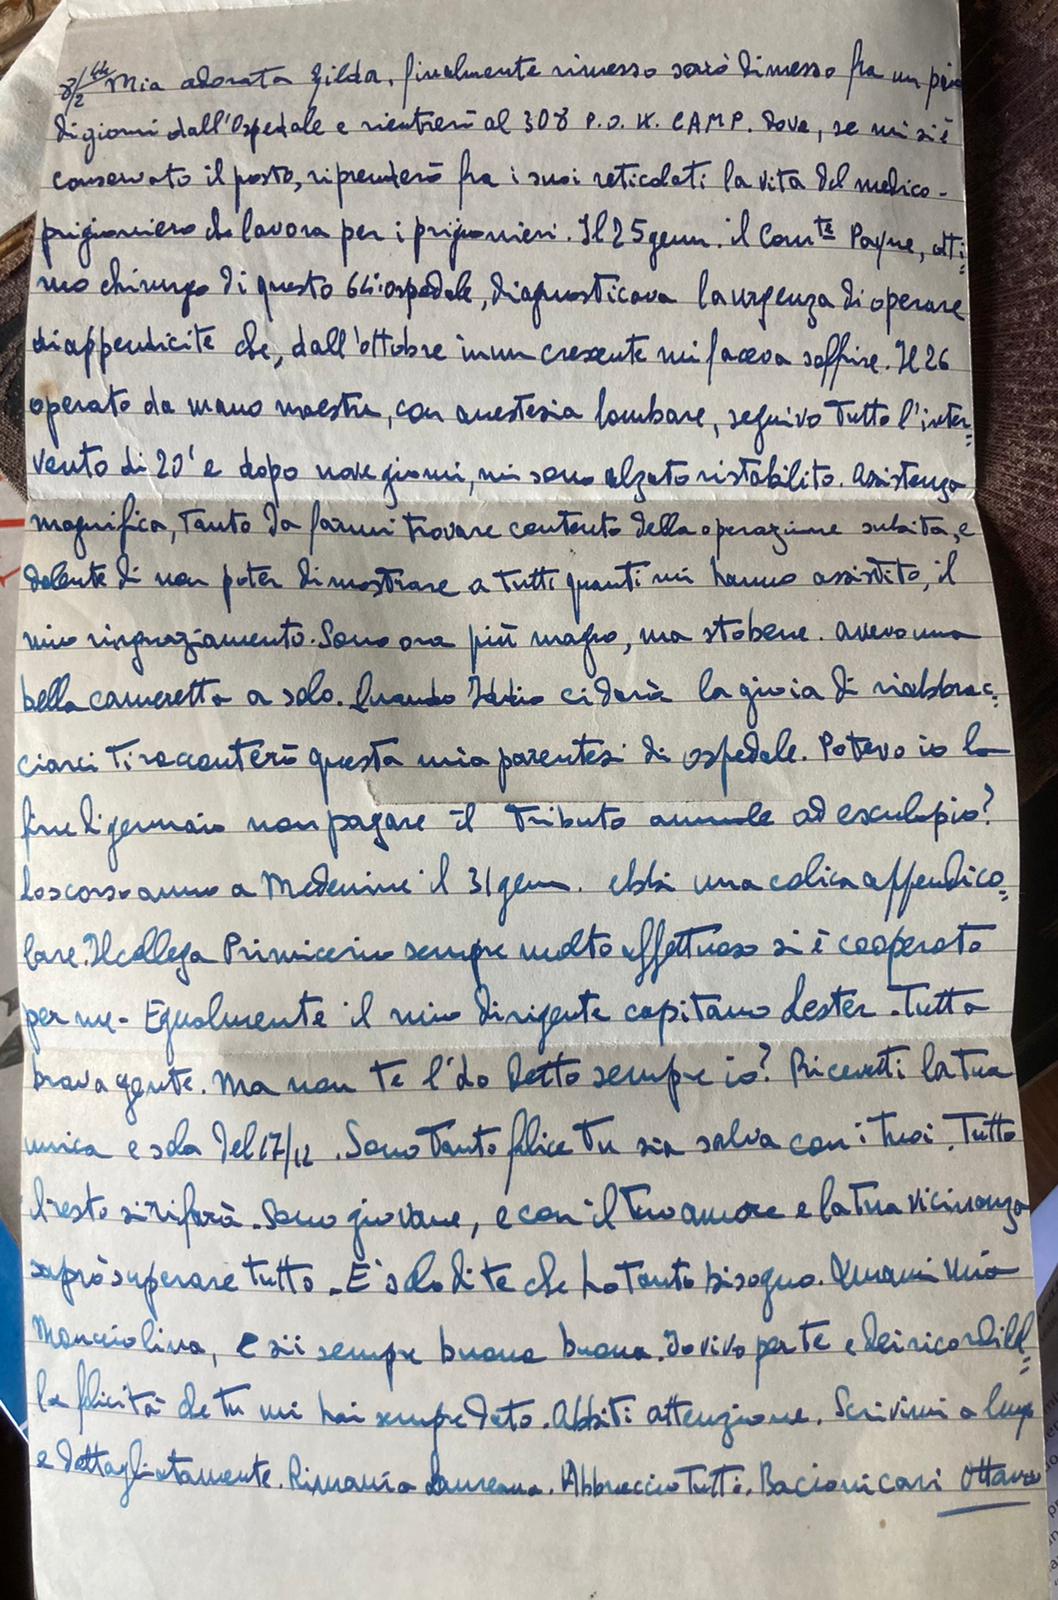 8/2 44 Mia adorata Gilda, finalmente rimesso sarò dimesso fra un paio
di giorni dall'Ospedale e rientrerò al 308 P.O.W. CAMP. Dove, se mi si è
conservato il posto, riprenderò fra i suoi reticolati la vita del medico-
prigioniero che lavora per i prigionieri. Il 25 genn. il Com.te Payne, otti=
mo chirurgo di questo 64° ospedale, diagnosticava la urgenza di operare
di appendicite che, dall'ottobre in un crescente mi faceva soffrire. Il 26
operato da mano maestra, con anestesia lombare, seguivo tutto l'inter=
vento di 20' e dopo nove giorni, mi sono alzato ristabilito. Assistenza
magnifica, tanto da farmi trovare contento della operazione subita, e
dolente di non poter dimostrare a tutti quanti mi hanno assistito, il
mio ringraziamento. Sono ora più magro, ma sto bene. Avevo una
bella cameretta a solo. Quando Iddio ci darà la gioia di riabbrac=
ciarci ti racconterò questa mia parentesi di ospedale. Potevo io la
fine di gennaio non pagare il tributo annuale ad esculapio?
Lo scorso anno a Medenine il 31 genn. ebbi una colica appendico=
lare. Il collega Primicerio sempre molto affettuoso si è cooperato
per me - Egualmente il mio dirigente capitano Lester. Tutta
brava gente. Ma non te l'ho detto sempre io? Ricevetti la tua
unica e sola del 17/12. Sono tanto felice tu sia salva con i tuoi. Tutto
il resto si rifarà. Sono giovane, e con il tuo amore e la tua vicinanza
saprò superare tutto - E' solo di te che ho tanto bisogno. Amami mia
Manciolina, e sii sempre buona buona. Io vivo per te e dei ricordi del=
la felicità che tu mi hai sempre dato. Abbiti attenzione. Scrivimi a lungo
e dettagliatamente. Rimani a Laureana. Abbraccio tutti. Bacioni cari Ottavio